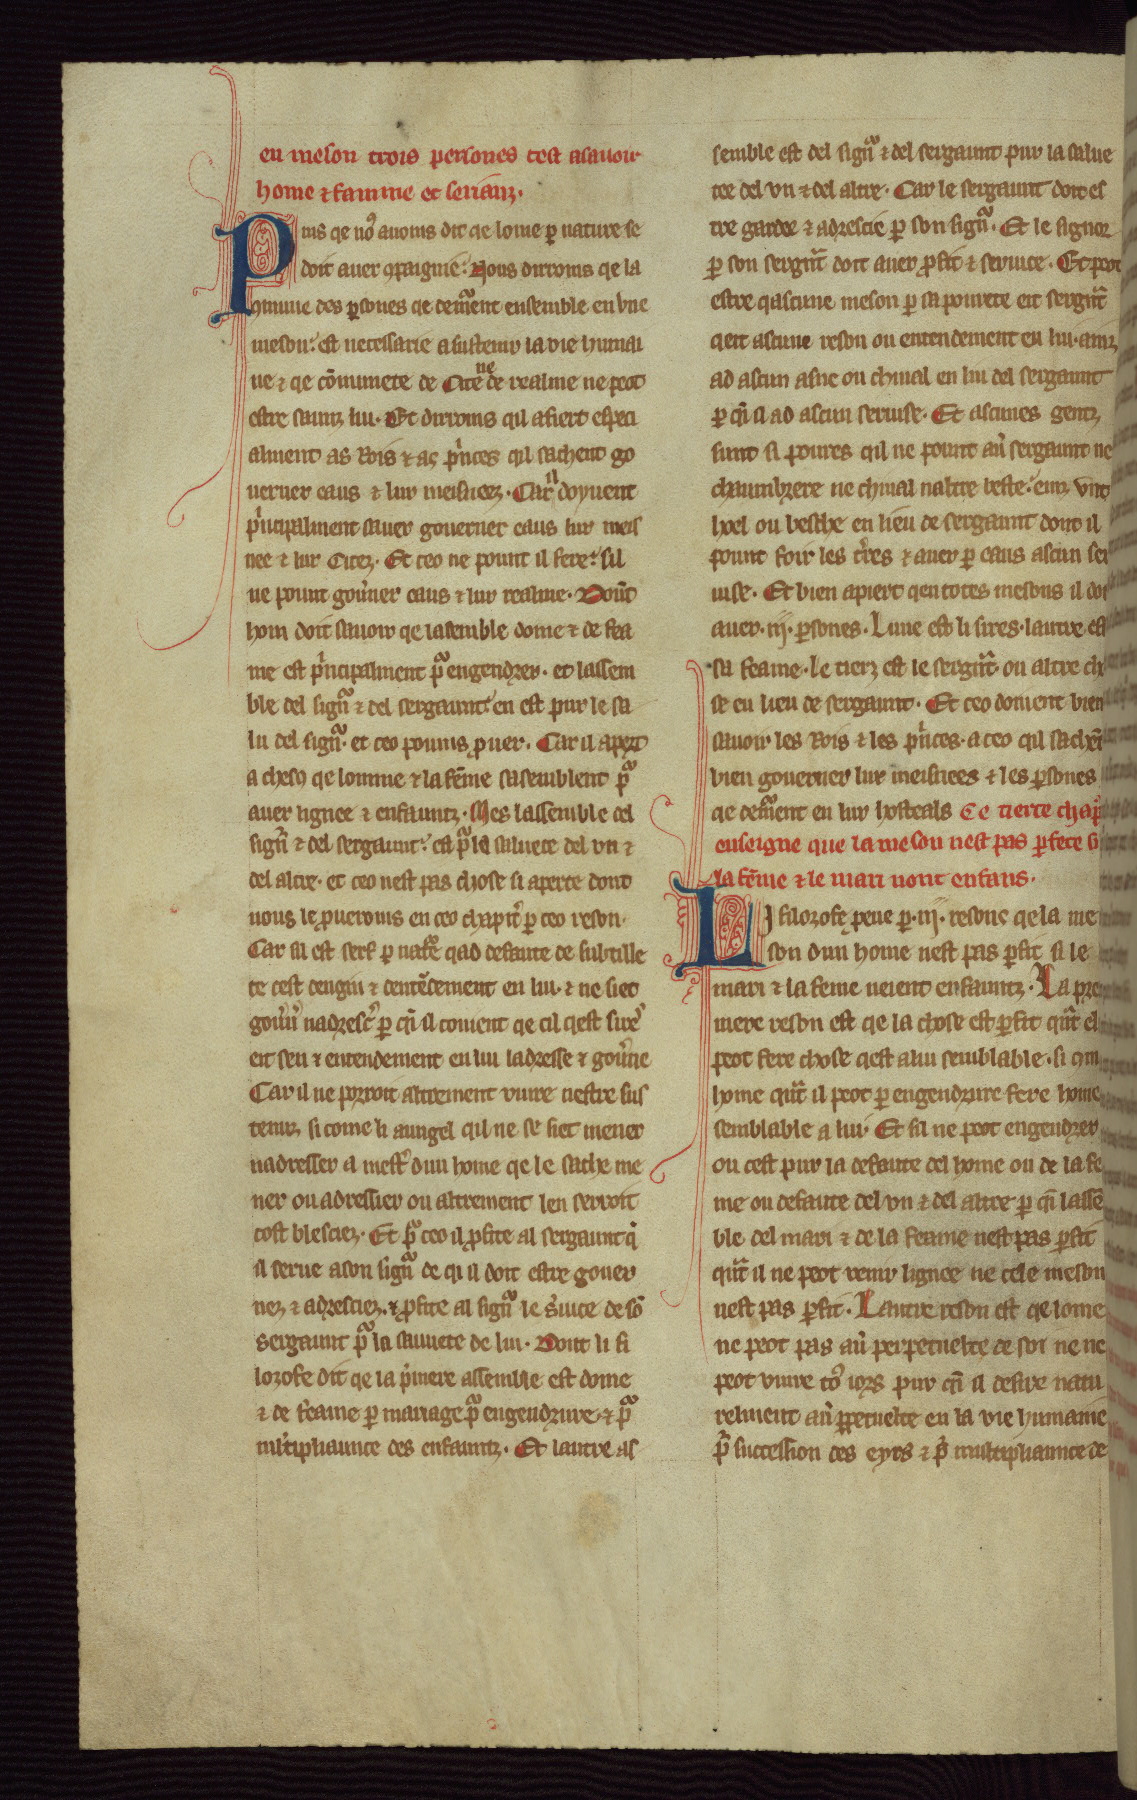 en meson trois persones cest asauoir
home ⁊ famme et serianz.
Puis qe no9 auoms dit qe lome p nature se
doit auer ꝯpaignie. Nous dirroms qe la
ꝯmune des psones qe demͣent ensemble en vne
meson: est necessarie a sustenir la vie humai
ne ⁊ qe cōmunete de Cite ne de realme ne peot
estre saunz lui. Et dirroms qil afiert especi
alment as Rois ⁊ as pͥnces qil sachent go
uerner eaus ⁊ lur meisneez. Car il doyuent
pͥncipalment sauer gouerner eaus lur meis
nee ⁊ lur Citez. Et ceo ne pount il fere: sil
ne pount gou̾ner eaus ⁊ lur realme. Dou̅t
hom doit sauoir qe lasemble dome ⁊ de fea
me est pͥncipalment pͣ engendrer. et lassem
ble del signͣ ⁊ del sergaunt en est pur le sa
lu del signͣ. et ceo poums ꝓuer. Car il apert
a ches9 qe lomme ⁊ la fēme sasemblent pͣ
auer lignee ⁊ enfauntz. Mes lassemble del
sign̄ ⁊ del sergaunt: est pͣ la saluete del vn ⁊
del altre. et ceo nest pas chose si aperte dont
nous le ꝓueroms en ceo chapit̾ p ceo reson.
Car sil est serf p natͤ qad defaute de subtille
te cest dengin ⁊ dentēdement en lui. ⁊ ne siet
gou̾n̾ nadresc̾ p qī il couient qe cil qest sire
eit sen ⁊ entendement en lui ladresse ⁊ gou̾ne
Car il ne porroit altrement viure nestre sus
tenuz si come li aungel qil ne se siet mener
nadresser a mest̾ dun home qe le sache me
ner ou adressier ou altrement len serroit
tost blesciez. Et pͣ ceo il ꝓfite al sergaunt qͥ
il serue a son signͣ de qi il doit estre gouer
nez ⁊ adresciez. ⁊ ꝓfite al signͣ le s̾uice de sō
sergaunt pͣ la sauuete de lui. Dont li fi
lozofe dit qe la pͥmere assemble est dome
⁊ de feame p mariage pͣ engendrure ⁊ pͣ
mlt̾ipliaunce des enfauntz. Et lautre as
semble est del signͣ ⁊ del sergaunt pur la salue
tee del vn ⁊ del altre. Car le sergaunt doit es
tre gardee ⁊ adrescie p son signͣ. Et le signor
p son sergn̄t doit auer ꝓfit ⁊ seruice. Et peot
estre qascune meson p sa pouerte eit sergn̄t
qeit ascune reson ou entendement en lui. ainz
ad ascun asne ou chiual en liu del sergaunt
p qī il ad ascun seruise. Et ascunes gentz
sunt si poures qil ne pount au̾ sergaunt ne
chaumbrere ne chiual naltre beste. einz vnt
hoel ou besche en lieu de sergaunt dont il
pount foir les t̾res ⁊ auer p eaus ascun ser
uise. Et bien apiert qen totes mesons il doi
auer .iij. psones. Lune est li sires. lautre est
sa feame. le tierz est le sergn̄t. ou altre cho
se en lieu de sergaunt. Et ceo doiuent bien
sauoir les Rois ⁊ les pͥnces. a ceo qil sachēt
bien gouerner lur meisnees ⁊ les psones
qe demͣent en lur hosteals Ce tierce chap̄
enseigne que la meson nest pas pfete si
la fēme ⁊ le mari nont enfans.
LI filozofe peue p .iij. resons qe la me
son dun home nest pas pfit si le
mari ⁊ la feme neient enfauntz. La pre
mere reson est qe la chose est pfit qn̄t el
peot fere chose qest a lui semblable. si com
home qn̄t il peot p engendrure fere home
semblable a lui. Et sil ne peot engendrer
ou cest pur la defaute del home ou de la fe
me ou defaute del vn ⁊ del altre p qī lassē
ble del mari ⁊ de la feame nest pas pfit
qn̄t il ne peot venir lignee ne cele meson
nest pas pfit. Lautre reson est qe lome
ne peot pas au̾ perpetuelte de soi ne ne
peot viure to9 iors pur qī il desire natu
relment au̾ ppetuelte en la vie humaine
pͣ succession des eyrs ⁊ pͣ multipliaunce de